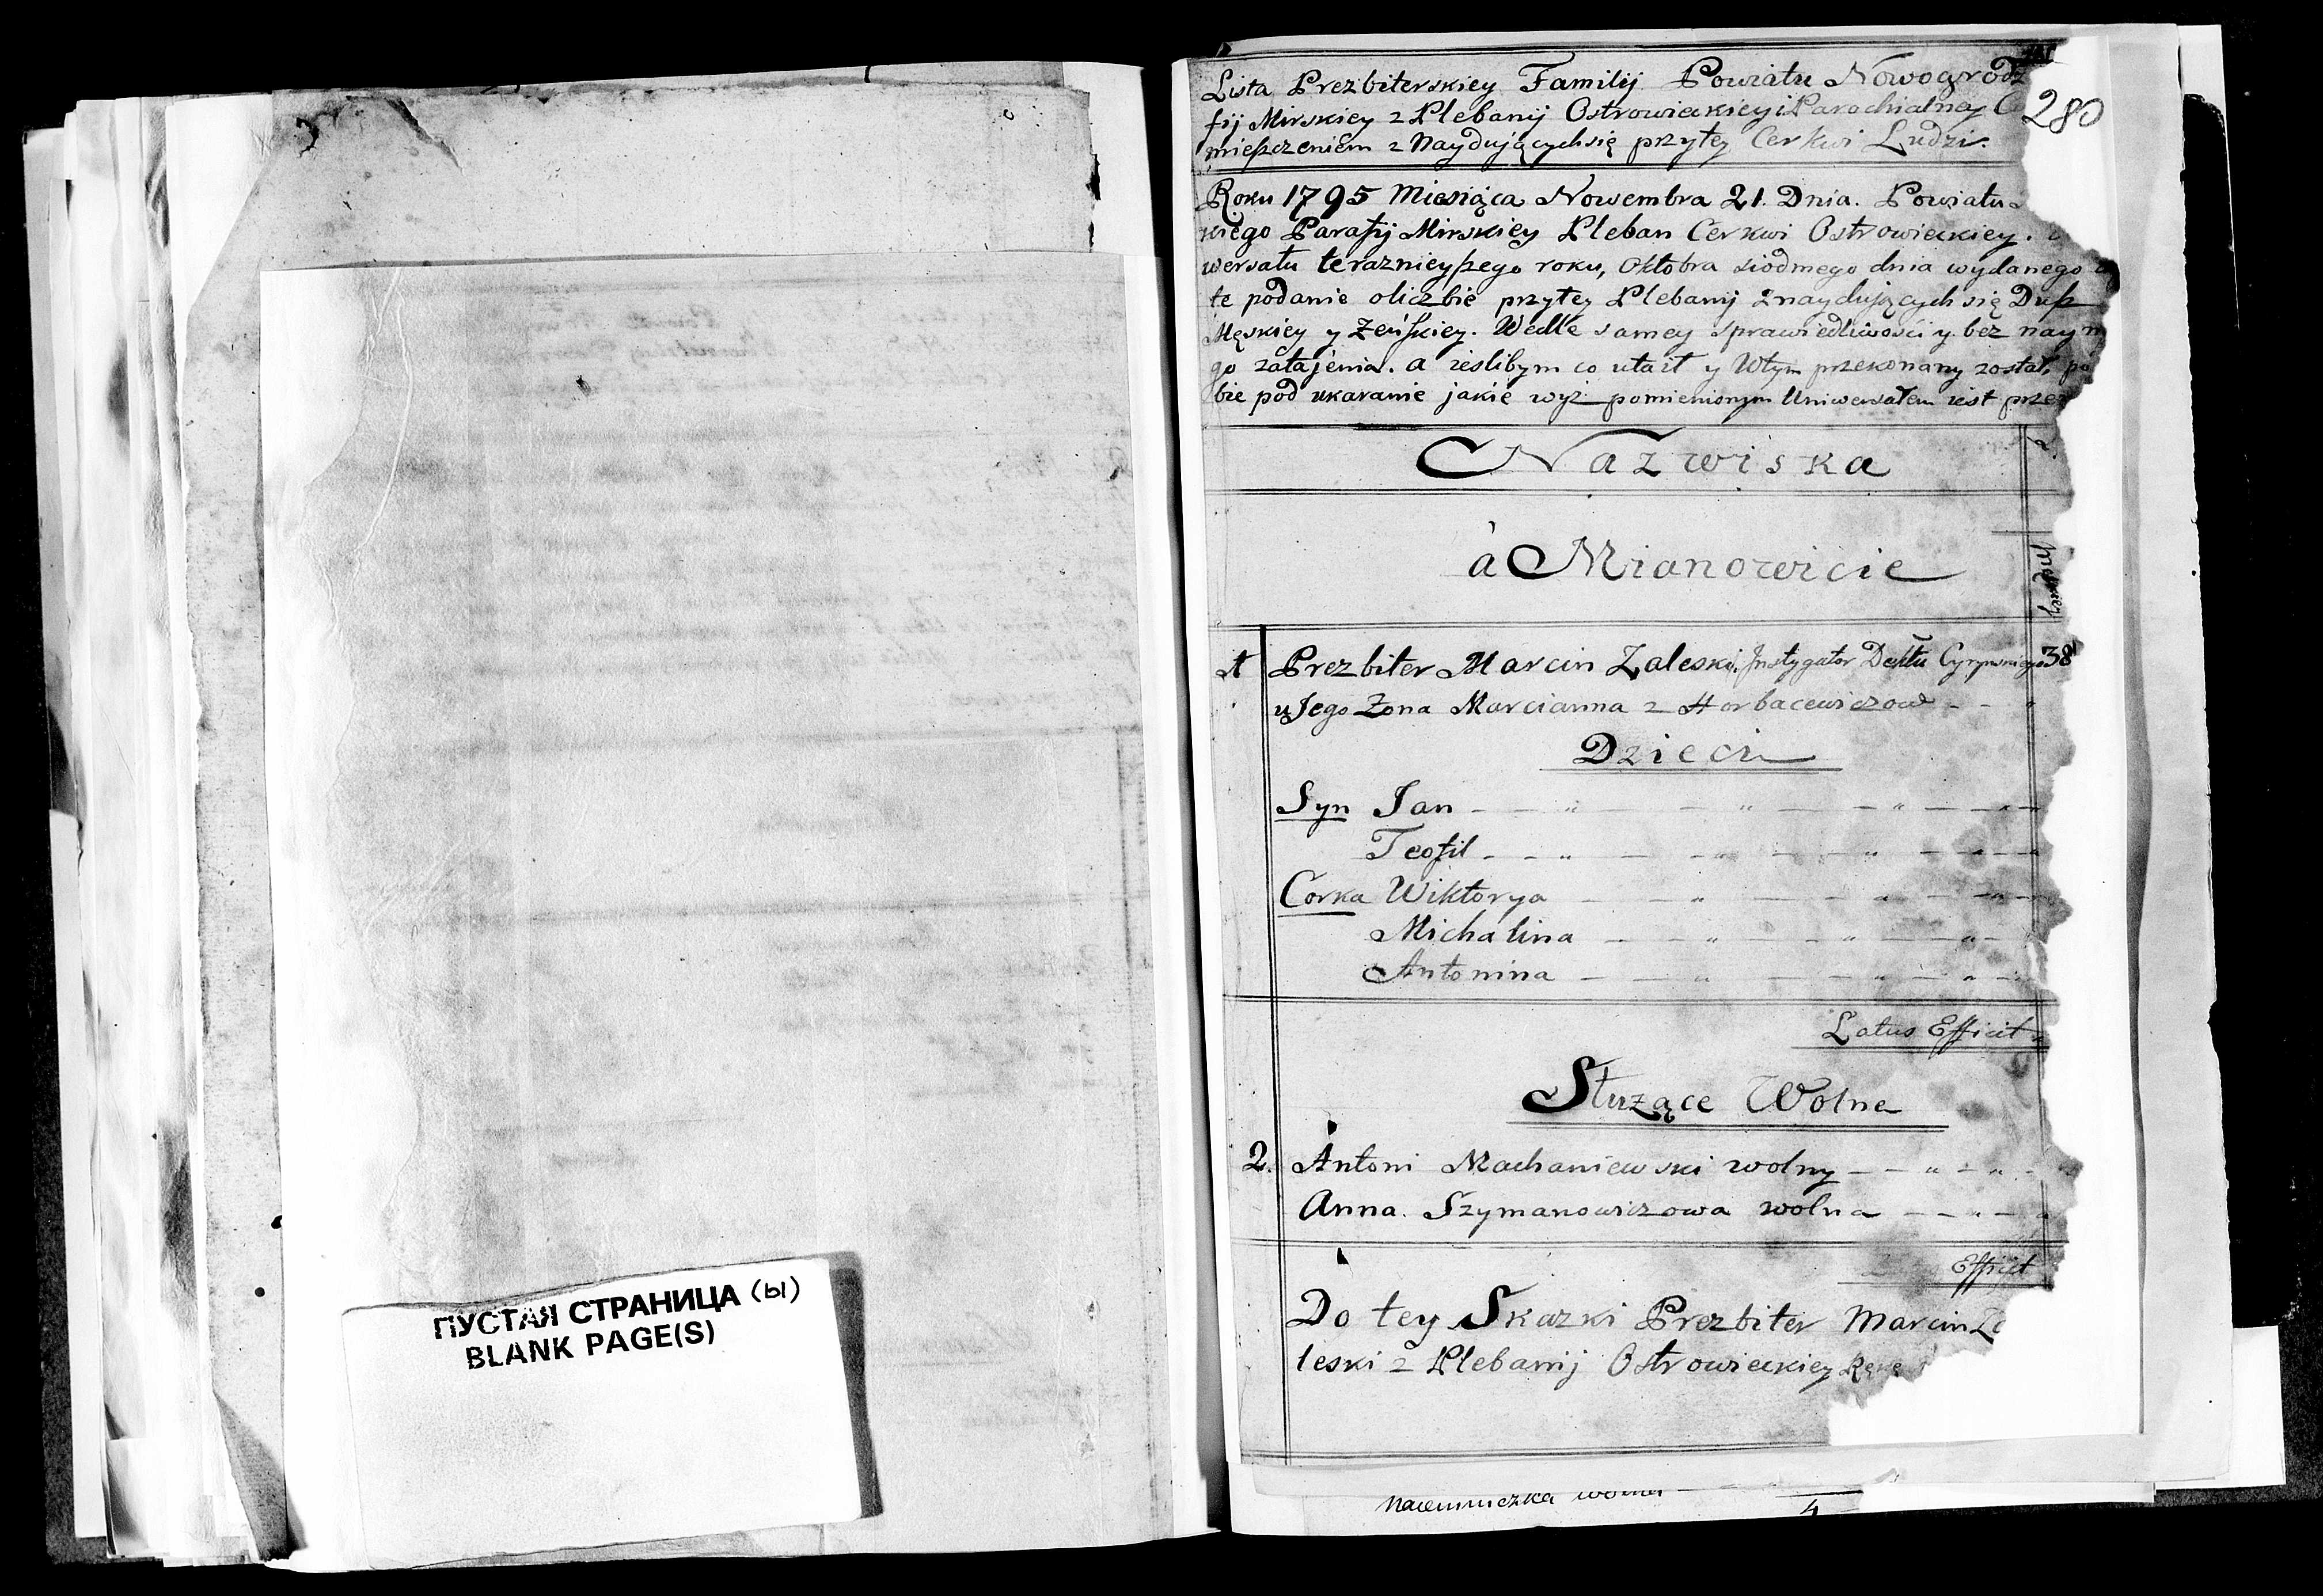 ПУСТАЯ СТРАНИЦА (ы)
BLANK PAGE(S)
280
Lista Prezbiterskiey Familij Powiatu Nowogrodz
fij Mirskiey z Plebanij Ostrowieckiey i Parochialney Ce
mieszczeniem z Naydującychsię przytey Cerkwi Ludzi.
Roku 1795 Miesiąca Nowembra 21. Dnia. Powiatu
kiego Parafij Mirskiey Pleban Cerkwi Ostrowieckiey.
wersału teraznieyszego roku, Oktobra siodmego dnia wydanego
te podanie oliczbie przytey Plebanij znaydujących się Dusz
Męskiey y Zeńskiey. Wedle samey sprawiedliwości y bez naym
go zatajenia. a ieslibym co utaił y Wtym przekonany został, po
bie pod ukaranie jakie wyż pomienionym Uniwersałem iest prze
Nazwiska
à Mianowicie
1 Prezbiter Marcin Zaleski, Instygator Dektu 38
y Jego Zona Marcianna z Horbacewiczow
Dzieci
Syn Jan
Teofil
Corka Wiktorya
Michalina
Antonina
Latus Efficit
Służące Wolne
2. Antoni Machaniewski wolny
Anna Szymanowiczowa wolna
Efficit
Do tey Skazki Prezbiter Marcin Za
leski z Plebanij Ostrowieckiey Rękę
4